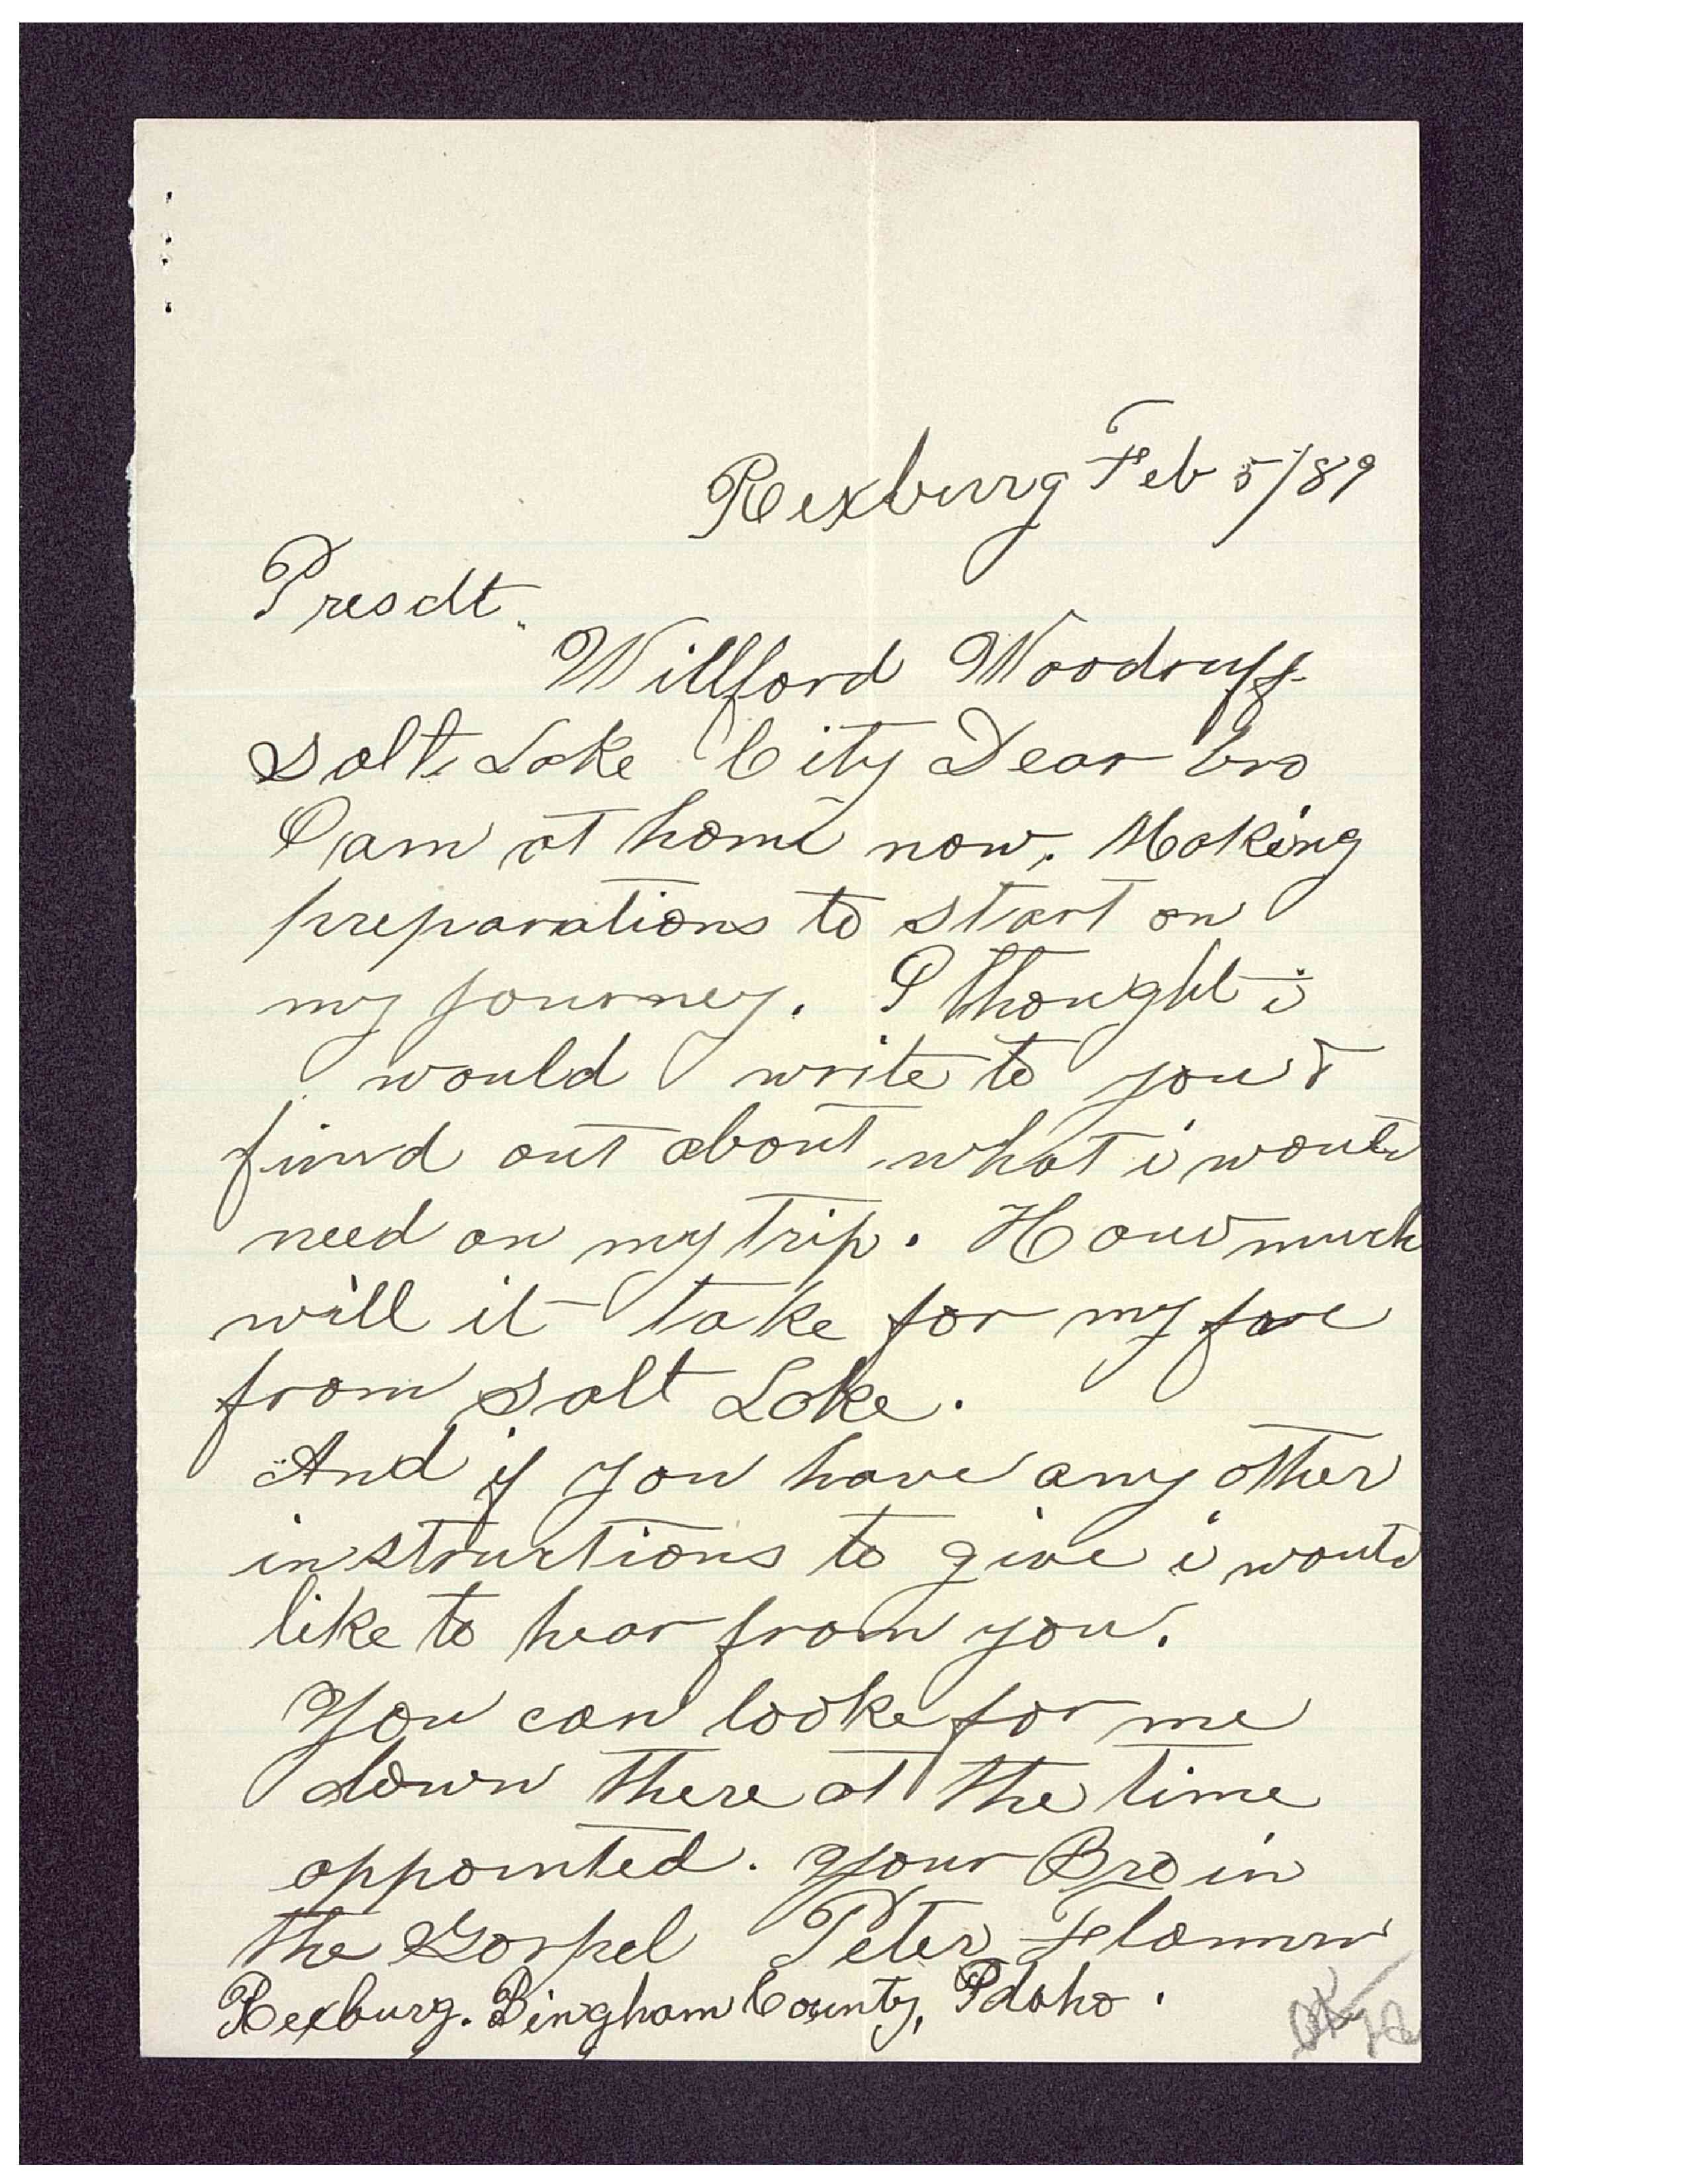 Rexburg Feb 5/89
Presdt.
Willford Woodruff
Salt Lake City Dear bro
I am at home now. Making
preparations to start on
my journey. I thought i
would write to you &
find out about what i would
need on my trip. How much
will it take for my fare
from Salt Lake.
And if you have any other
instructions to give i would
like to hear from you.
You can looke for me
down there at the time
appointed. Your Bro in
the Gospel Peter Flamm
Rexburg. Bingham County, Idaho.